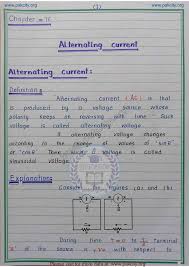 www.pakcity.org
(1)
www.pakcity.org
Chapter = 16
Alternating current
Alternating current:
Definition:
Alternating current (AC) is that
is produced by a voltage source whose
polarity keeps on reversing with time. Such
voltage is called alternating voltage.
If alternating voltage changes
according to the change of values of "sinθ"
or "cosθ" then voltage is called
sinusoidal voltage.
Explanation:
Consider figures (a) and (b)
During time T = 0 to
of the source is +ve with respect to